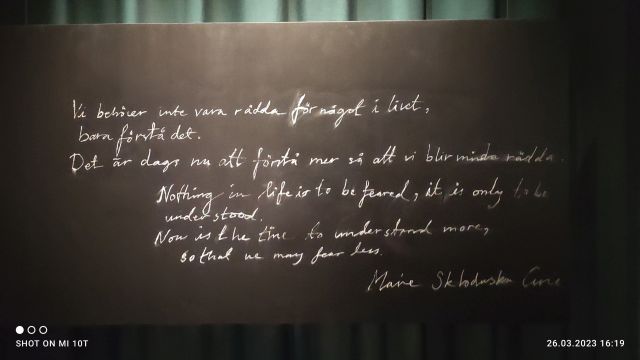 Vi behöver inte vara rädda för något i livet,
bara förstå det.
Det är dags nu att förstå mer så att vi blir mindre rädda.
Nothing in life is to be feared, it is only to be
understood.
Now is the time to understand more,
so that we may fear less.
Marie Sklodowska Curie
SHOT ON MI 10T
26.03.2023 16:19